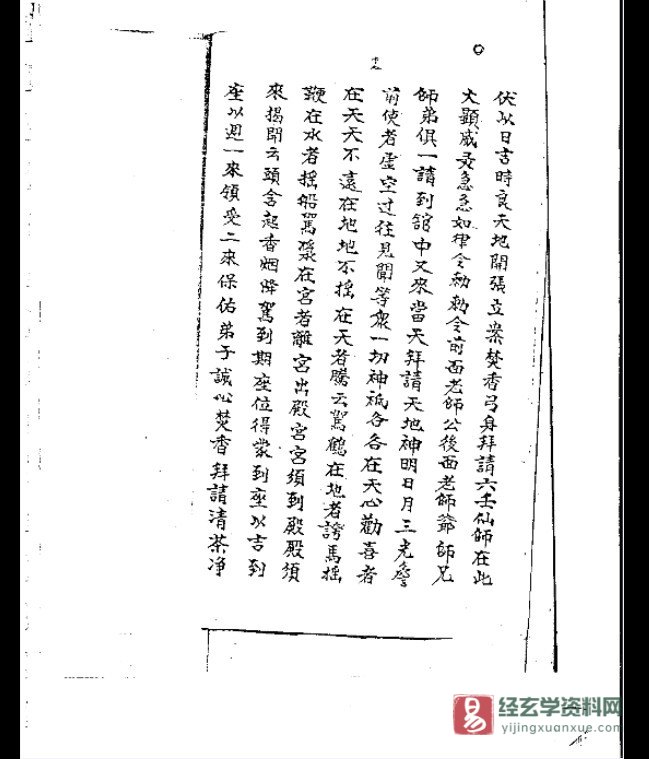 伏以日吉時良天地開張立案焚香弓身拜請六壬仙師在此
大顯威灵急急如律令勅勅令前面老師公後面老師爺師兄
師弟俱一請到舘中又來當天拜請天地神明日月三光詹
前使者虛空过往見聞等衆一切神祗各各在天心勸喜者
在天天不遠在地地不摇在天者騰云駕鶴在地者誇馬摇
鞭在水者摇船駕槳在宮者離宮出殿宮宮須到殿殿須
來揭開云頭舍起香烟降駕到期座位得裳到座以吉到
座以迎一來領受二來保佑弟子誠心焚香拜請清茶净
易 经玄学资料网
yijingxuanxue.com